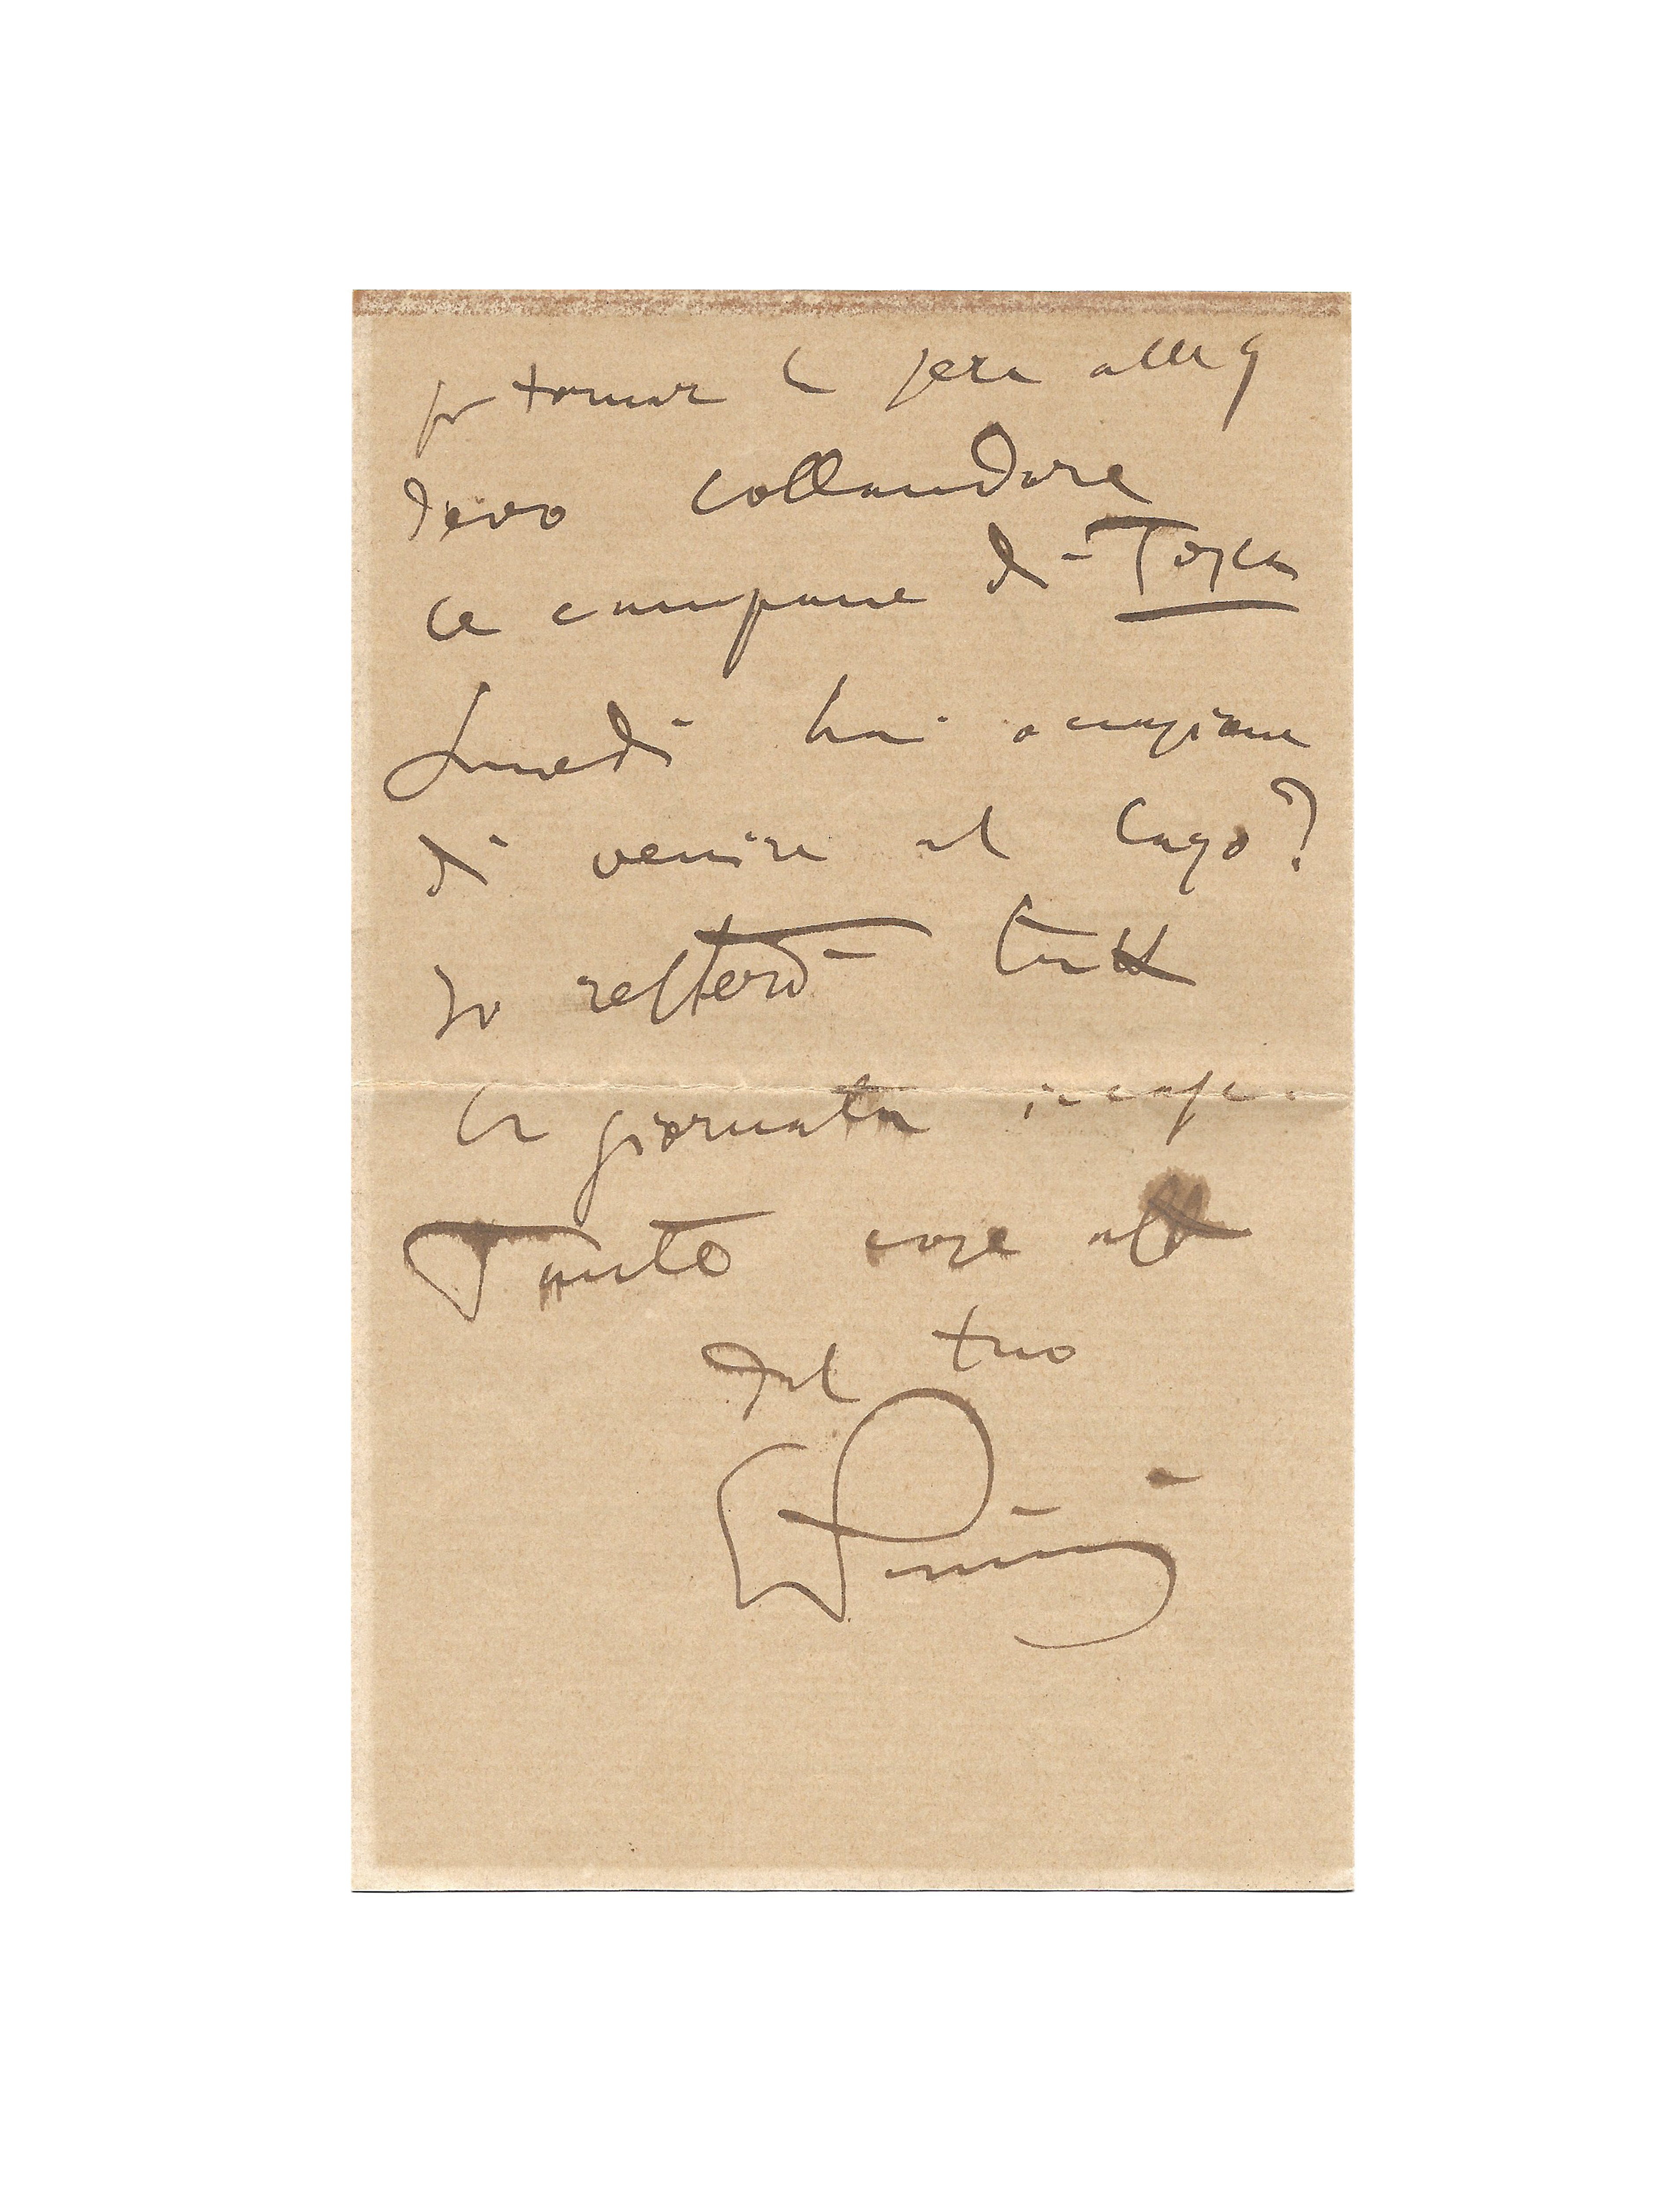 per tornar la sera alle 9
devo collaudare
le campane di Tosca
Lunedì hai occasione
di venire al lago?
Io resterò tutta
la giornata in casa.
Tante cose aff
dal tuo
GPuccini